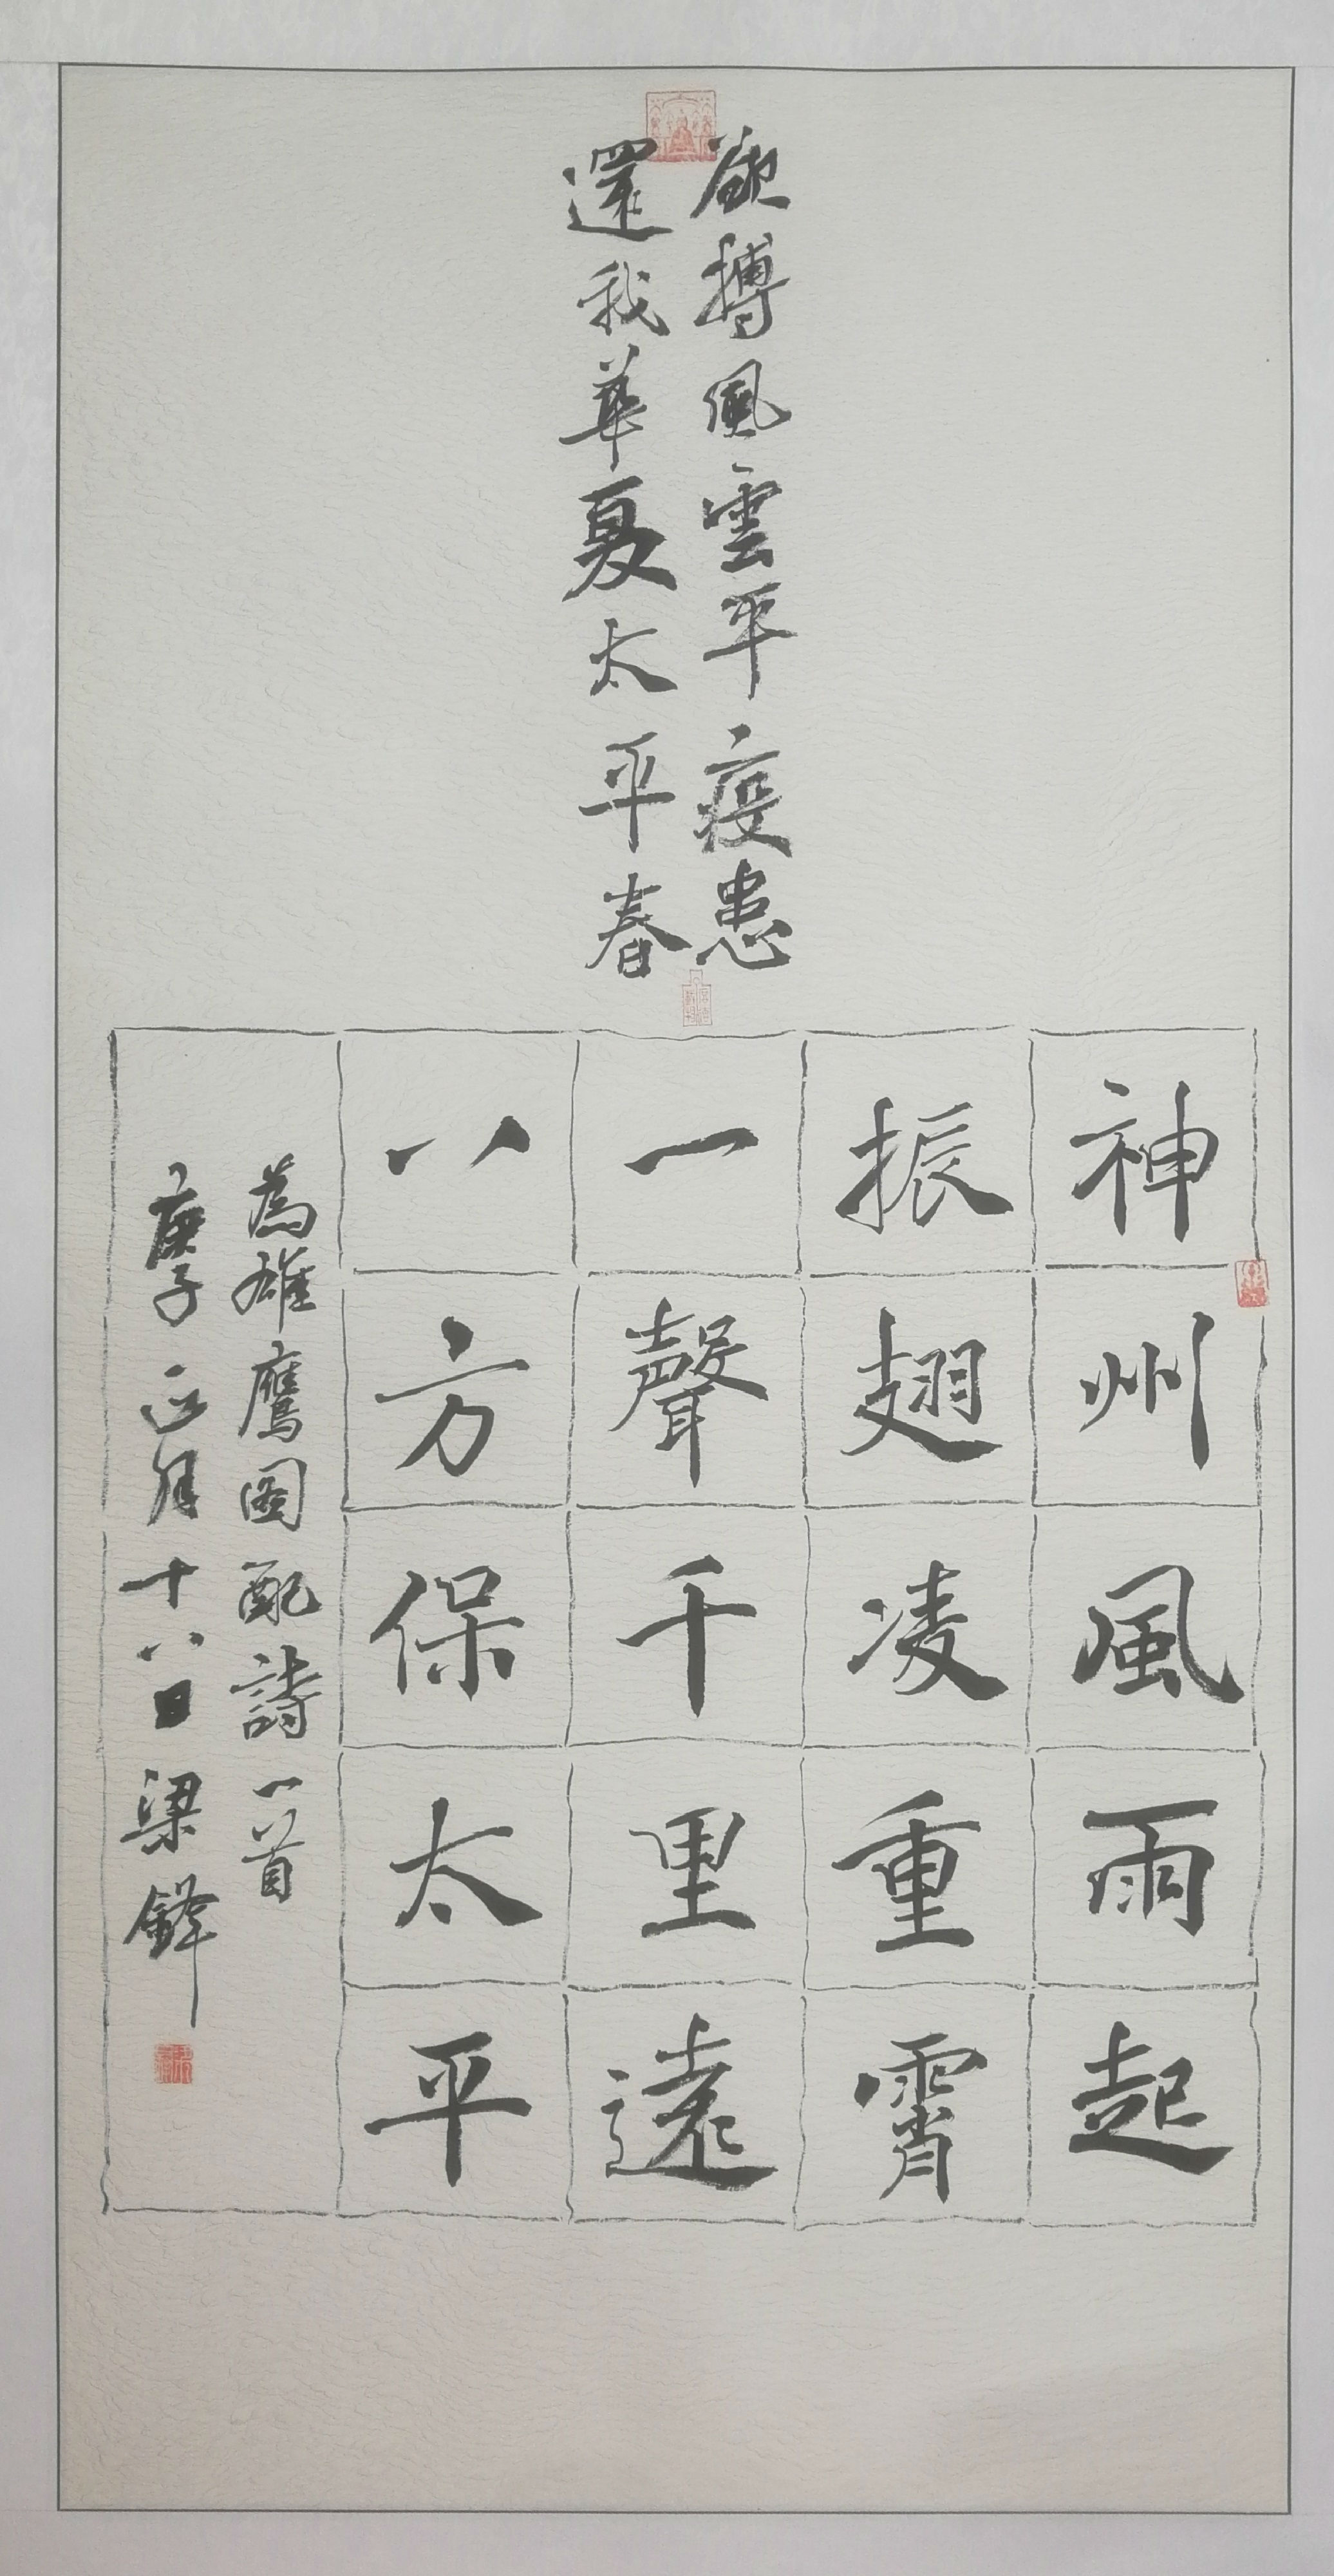 欲搏風雲平疫患
還我華夏太平春
神州風雨起
振翅凌重霄
一聲千里遠
八方保太平
為雄鷹图配詩一首
庚子正月十八日梁鋒